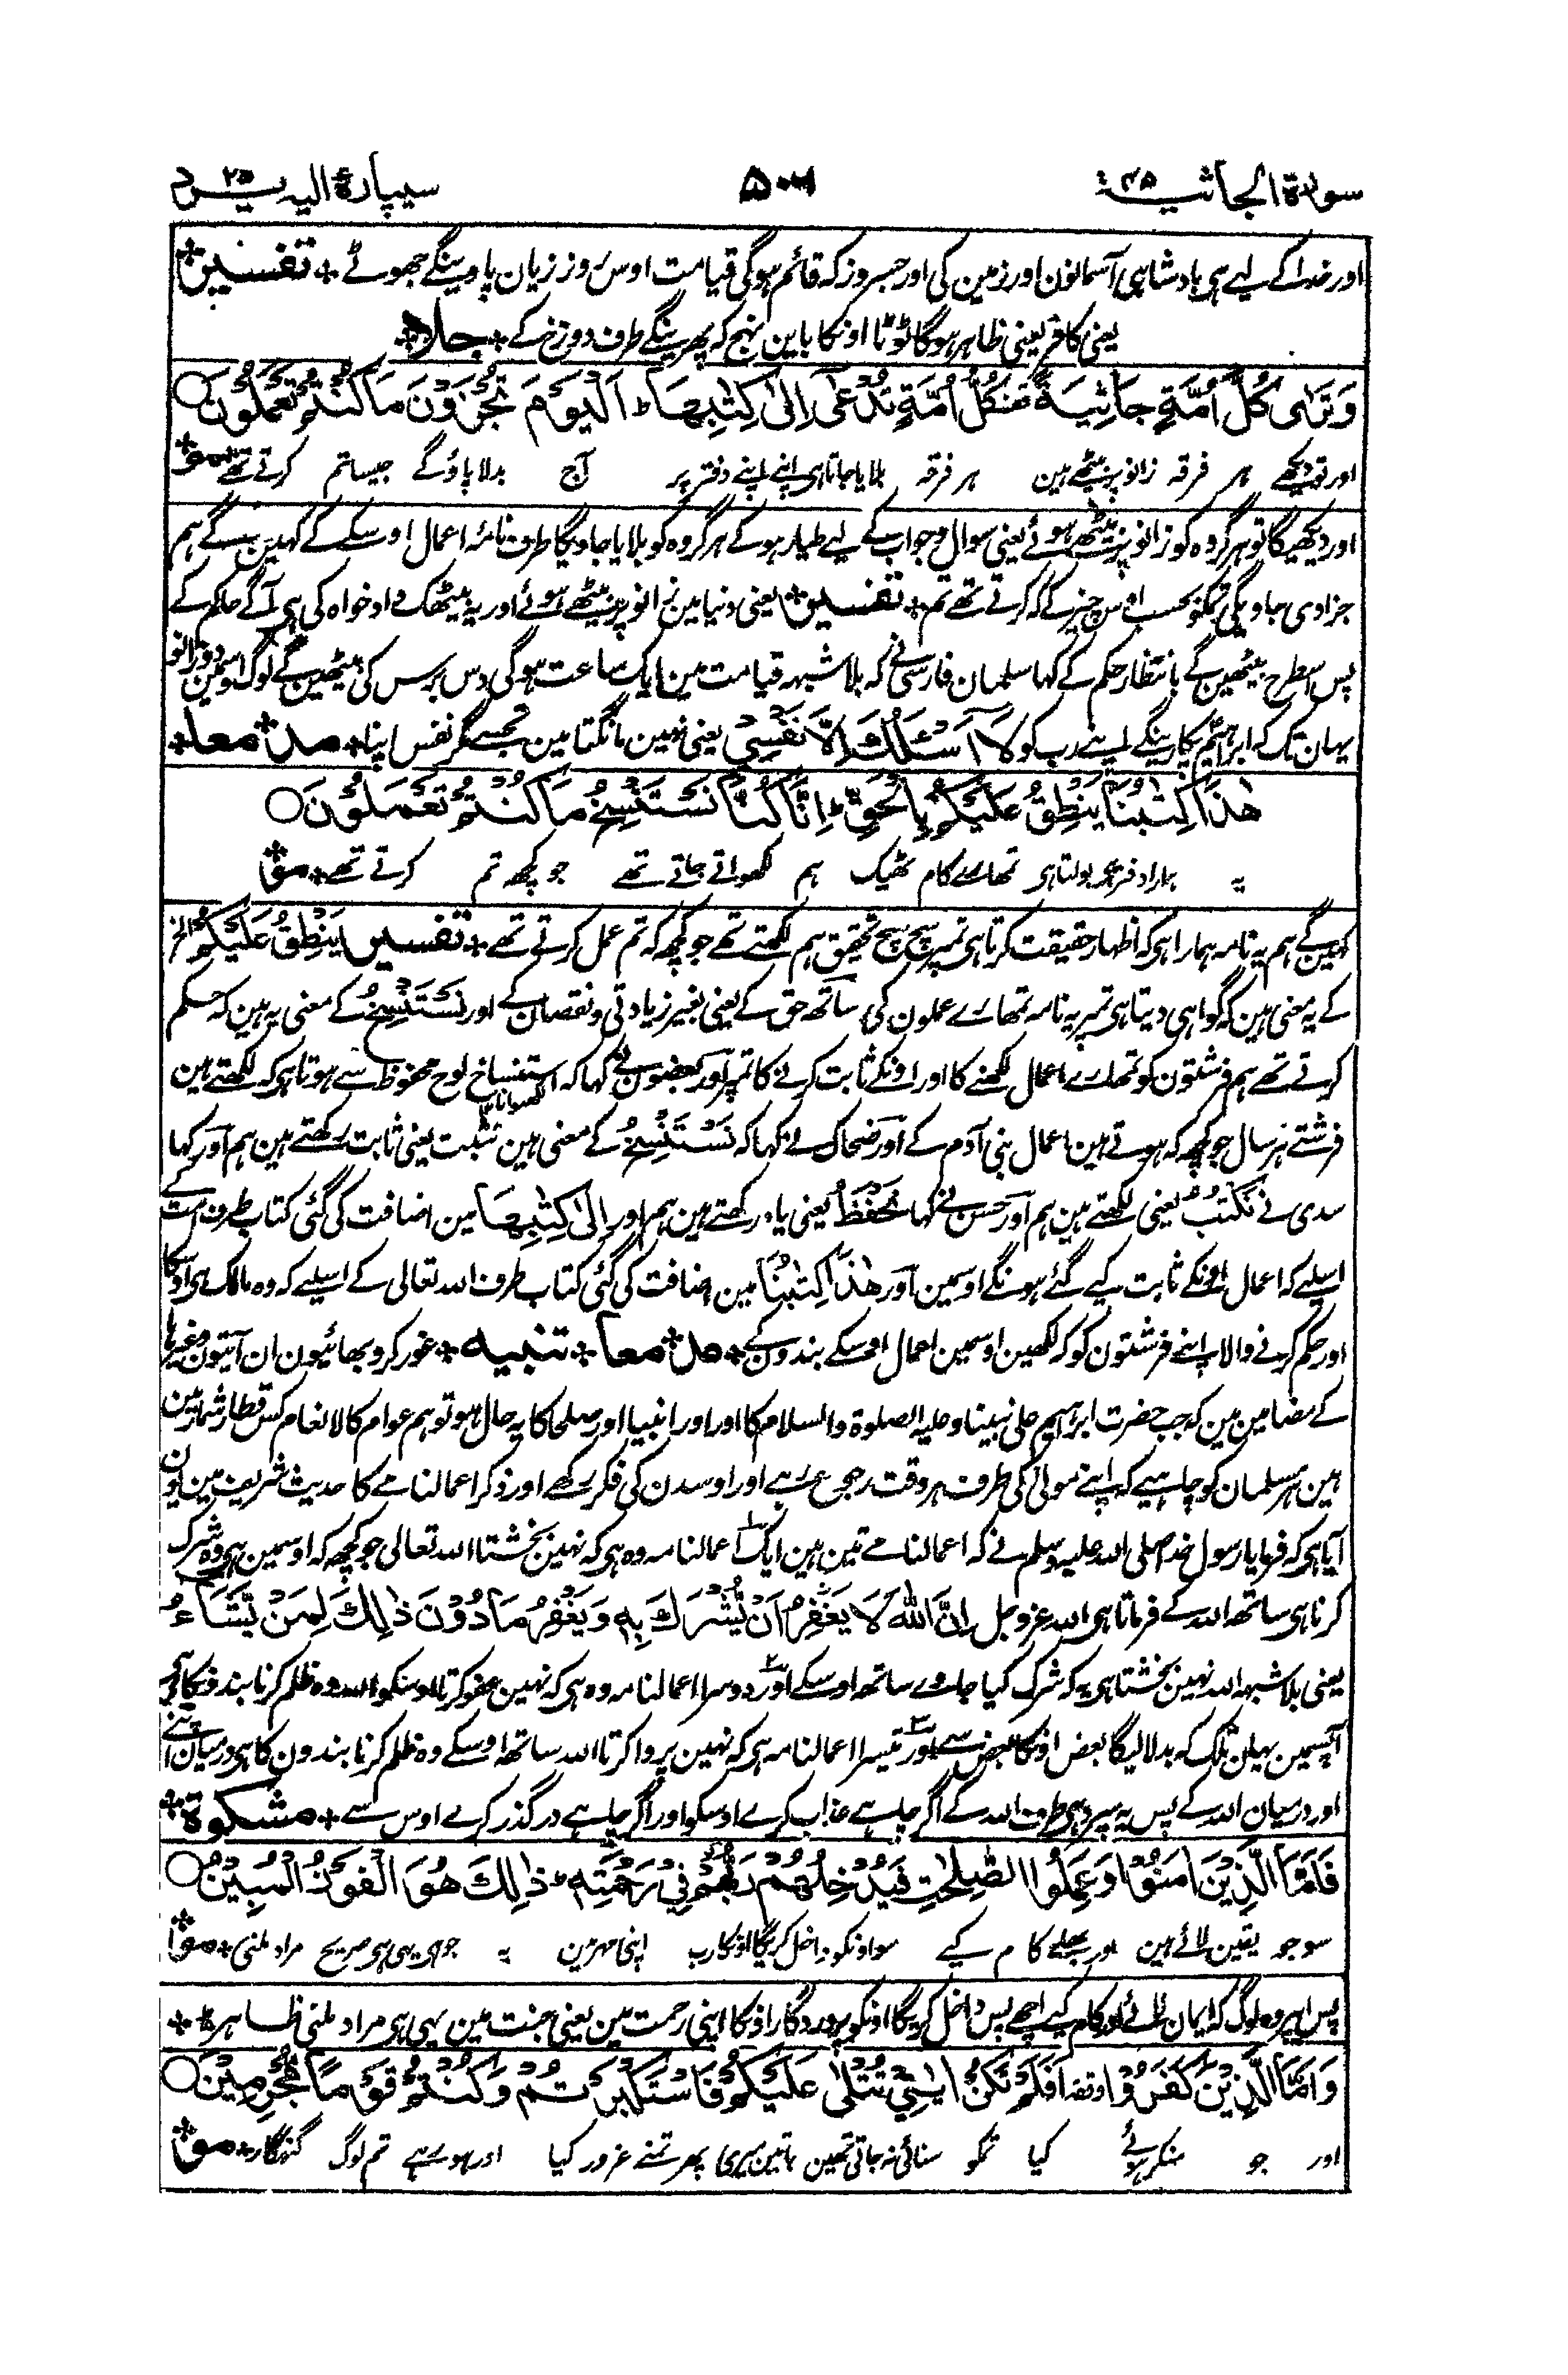 سورة الجاثیة ۴۵
۵۰۶
سیپارهٔ الیه یرد ۲۵
اور خدا کے لیے ہی بادشاہی آسمانون اور زمین کی اور جسروز کہ قائم ہوگی قیامت اوس روز زیان پاوینگے جھوٹے ٭ تفسیر ٭
یعنی کافر یعنی ظاہر ہوگا ٹوٹا اونکا باین نہج کہ پھرینگے طرف دوزخ کے ٭ جلا ٭
وَتَرٰی كُلَّ اُمَّةٍ جَاثِيَةً كُلُّ اُمَّةٍ تُدْعٰٓی اِلٰی كِتٰبِهَا ؕ اَلْيَوْمَ تُجْزَوْنَ مَا كُنْتُمْ تَعْمَلُوْنَ ○
اور تو دیکھے ہر فرقہ زانو پر بیٹھے ہین ہر فرقہ بلایا جاتا ہی اپنے اپنے دفتر پر آج بدلا پاؤگے جیسا تم کرتے تھے مو ٭
اور دیکھیگا تو ہر گروہ کو زانو پر بیٹھے ہوئے یعنی سوال وجواب کے لیے طیار ہو کے ہر گروہ کو بلایا جاویگا طرف نامۂ اعمال اوسکے کے کہدین گے ہم
جزا دی جاویگی تمکو بحسب اوس چیز کے کہ کرتے تھے تم ٭ تفسیر ٭ یعنی دنیا مین زانو پر بیٹھے ہوئے اور یہ بیٹھک داد خواہ کی ہی آگے حاکم کے
پس اسطرح بیٹھین گے بانتظار حکم کے کہا سلمان فارسی نے کہ بلا شبہہ قیامت مین ایک ساعت ہوگی دس برس کی بیٹھین گے لوگ اوسمین دوزانو
یہان تک کہ ابراہیم پکارینگے اپنے رب کو لَا اَسْئَلُكَ اِلَّا نَفْسِیْ یعنی نہین مانگتا مین تجھسے مگر نفس اپنا ٭ مد ٭ معا ٭
هٰذَا كِتٰبُنَا يَنْطِقُ عَلَيْكُمْ بِالْحَقِّ ؕ اِنَّا كُنَّا نَسْتَنْسِخُ مَا كُنْتُمْ تَعْمَلُوْنَ ○
یہ ہمارا دفتر ہی بولتا ہی تمھارے کام ٹھیک ہم لکھواتے جاتے تھے جو کچھ تم کرتے تھے ٭ مو ٭
کہین گے ہم یہ نامہ ہمارا ہی کہ اظہار حقیقت کرتا ہی تمپر سچ سچ تحقیق ہم لکھتے تھے جو کچھ کہ تم عمل کرتے تھے ٭ تفسیر يَنْطِقُ عَلَيْكُمْ الخ
کے یہ معنی ہین کہ گواہی دیتا ہی تمپر یہ نامہ تمھارے عملون کی ساتھ حق کے یعنی بغیر زیادتی و نقصان کے اور نَسْتَنْسِخُ کے معنی یہ ہین کہ حکم
کرتے تھے ہم فرشتون کو تمھارے اعمال لکھنے کا اور اونکے ثابت کرنے کا تمپر اور بعضون نے کہا کہ استنساخ لوح محفوظ سے ہوتا ہی کہ لکھتے ہین
فرشتے ہر سال جو کچھ کہ ہوتے ہین اعمال بنی آدم کے اور ضحاک نے کہا کہ نَسْتَنْسِخُ کے معنی ہین نثبت یعنی ثابت رکھتے ہین ہم اور کہا
سدی نے نَكْتُبُ یعنی لکھتے ہین ہم اور حسن نے کہا نَحْفَظُ یعنی یاد رکھتے ہین ہم اور اِلٰی كِتٰبِهَا مین اضافت کی گئی کتاب طرف امت کے
اسلیے کہ اعمال اونکے ثابت کیے گئے ہونگے اوسمین اور هٰذَا كِتٰبُنَا مین اضافت کی گئی کتاب طرف اللہ تعالی کے اسلیے کہ وہ مالک ہی اوسکا
اور حکم کرنے والا اپنے فرشتون کو کہ لکھین اوسمین اعمال اوسکے بندون کے ٭ مد ٭ معا ٭ تنبیه ٭ غور کرو بھائیون ان آیتون وغیرہا
کے مضامین مین کہ جب حضرت ابراہیم علی نبینا وعلیہ الصلوۃ والسلام کا اور اور انبیا اور صلحا کا یہ حال ہو تو ہم عوام کالانعام کس قطار شمار مین
ہین ہر مسلمان کو چاہیے کہ اپنے مولی کی طرف ہر وقت رجوع رہے اور اوسدن کی فکر رکھے اور ذکر اعمالنامے کا حدیث شریف مین یون
آیا ہی کہ فرمایا رسول خدا صلی اللہ علیہ وسلم نے کہ اعمالنامے تین ہین ایک اعمالنامہ وہ ہی کہ نہین بخشتا اللہ تعالی جو کچھ کہ اوسمین ہی وہ شرک
کرنا ہی ساتھ اللہ کے فرماتا ہی اللہ عز وجل اِنَّ اللّٰهَ لَا يَغْفِرُ اَنْ يُّشْرَكَ بِهٖ وَيَغْفِرُ مَا دُوْنَ ذٰلِكَ لِمَنْ يَّشَآءُ
یعنی بلا شبہہ اللہ نہین بخشتا ہی یہ کہ شرک کیا جاوے ساتھ اوسکے اور دوسرا اعمالنامہ وہ ہی کہ نہین عفو کرتا اوسکو اللہ وہ ظلم کرنا بندونکا ہی
آپسمین یہان تک کہ بدلا لیگا بعض اونکا بعض سے اور تیسرا اعمالنامہ ہی کہ نہین پروا کرتا اللہ ساتھ اوسکے وہ ظلم کرنا بندون کا ہی درمیان اپنے
اور درمیان اللہ کے پس یہ سپرد ہی طرف اللہ کے اگر چاہے عذاب کرے اوسکو اور اگر چاہے در گذر کرے اوس سے ٭ مشکوة ٭
فَاَمَّا الَّذِيْنَ اٰمَنُوْا وَعَمِلُوا الصّٰلِحٰتِ فَيُدْخِلُهُمْ رَبُّهُمْ فِیْ رَحْمَتِهٖ ؕ ذٰلِكَ هُوَ الْفَوْزُ الْمُبِيْنُ ○
سو جو یقین لائے ہین اور بھلے کام کیے سو اونکو داخل کریگا اونکا رب اپنی مہر مین یہ جو ہی یہی ہی صریح مراد ملنی ٭ مو ٭
پس اپر وہ لوگ کہ ایمان لائے اور کام کیے اچھے پس داخل کریگا اونکو پروردگار اونکا اپنی رحمت مین یعنی جنت مین یہی ہی مراد ملنی ظاہر ٭
وَاَمَّا الَّذِيْنَ كَفَرُوْا وقفہ اَفَلَمْ تَكُنْ اٰيٰتِیْ تُتْلٰی عَلَيْكُمْ فَاسْتَكْبَرْتُمْ وَكُنْتُمْ قَوْمًا مُّجْرِمِيْنَ ○
اور جو منکر ہوئے کیا تمکو سنائی نہ جاتی تھین باتین میری پھر تمنے غرور کیا اور ہو رہے تم لوگ گنہگار ٭ مو ٭